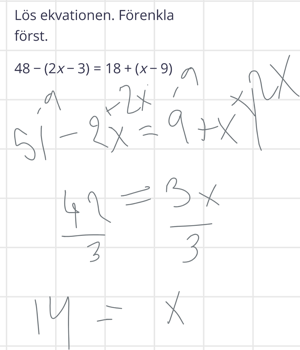 Lös ekvationen. Förenkla
först.
48 − (2x − 3) = 18 + (x − 9)
-9 +2x -9 +2x
51 − 2x = 9 + x
42/3 = 3x/3
14 = x